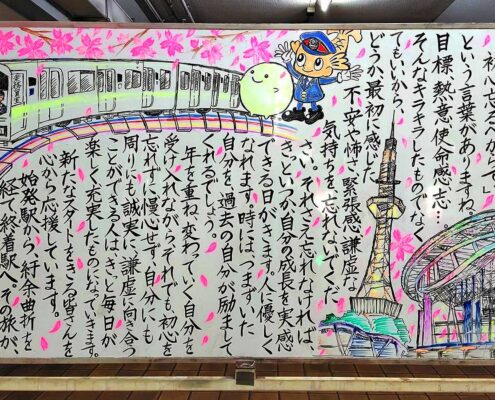 「初心忘るべからず」
という言葉がありますね。
目標、熱意、使命感、志…
そんなキラキラしたものでなく
てもいいから、
どうか、最初に感じた
不安や怖さ、緊張感、謙虚な
気持ちを忘れないでくだ
さい。それさえ忘れなければ、
きっといつか自分の成長を実感
できる日がきます。人に優しく
なれます。時には、つまずいた
自分を、過去の自分が励まして
くれるでしょう。
年を重ね、変わっていく自分を
受け入れながら、それでも初心を
忘れずに慢心せず、自分にも
周りにも誠実に、謙虚に向き合う
ことができる人は、きっと毎日が
楽しく充実したものになっていきます。
新たなスタートをきった皆さんを
心から応援しています。
始発駅から、紆余曲折を
経て、終着駅へ。その旅が、